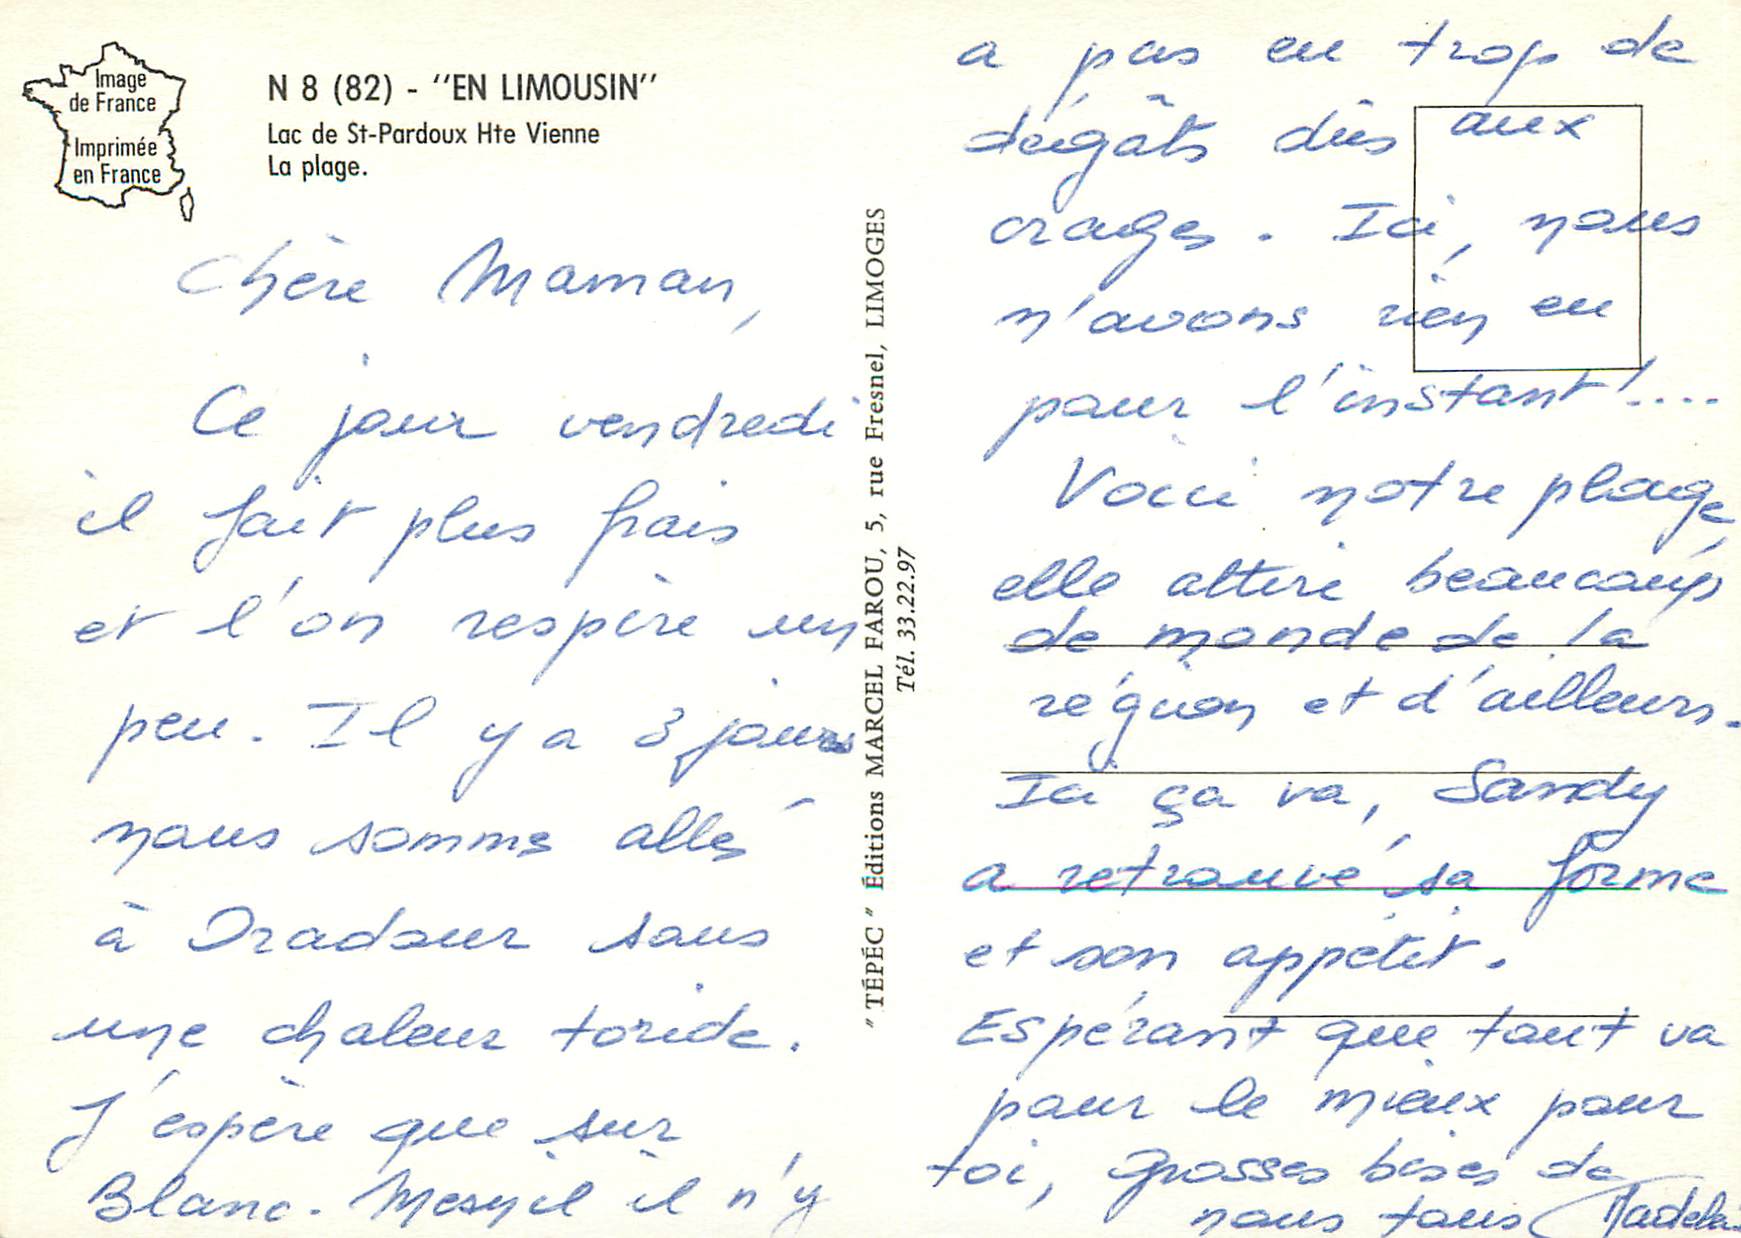 Image
de France
Imprimée
en France
N 8 (82) - "EN LIMOUSIN"
Lac de St-Pardoux Hte Vienne
La plage.
Chère Maman,
Ce jour vendredi
il fait plus frais
et l'on respire un
peu. Il y a 3 jours
nous somme allés
à Oradour sous
une chaleur toride.
J'espère que sur
Blanc-Mesnil il n'y
"TÉPÉC" Éditions MARCEL FAROU, 5, rue Fresnel, LIMOGES
Tél. 33.22.97
a pas eu trop de
dégâts dûs aux
orages. Ici, nous
n'avons rien eu
pour l'instant!....
Voici notre plage,
elle attire beaucoup
de monde de la
région et d'ailleurs.
Ici ça va, Sandy
a retrouvé sa forme
et son appétit.
Espérant que tout va
pour le mieux pour
toi, grosses bises de
nous tous